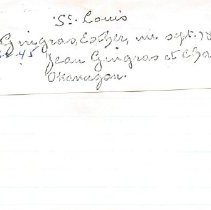 St. Louis
Gingras, Esther, m. sept.
45 Jean Gingras et Cha
Okanagan.